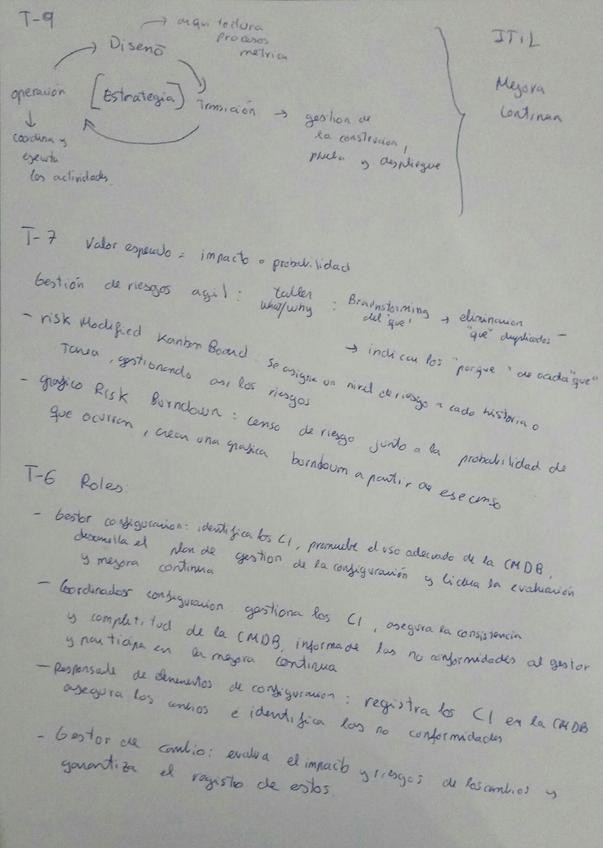 T-9
Diseño → arquitectura
procesos
metrica
operación
[Estrategia]
Transición → gestion de
la construcion,
prueba y despliegue
coordina y
ejecuta
las actividades.
ITIL
Mejora
Continua
T-7 Valor esperado = impacto * probabilidad
Gestión de riesgos agil: taller what/why : Brainstorming del "que" → eliminacion "que" duplicados
→ indican los "porque" de cada "que"
- risk Modified Kanban Board: Se asigna un nivel de riesgo a cada historia o
tarea, gestionando asi los riesgos
- grafico Risk Burndown: censo de riesgo junto a la probabilidad de
que ocurran, crean una grafica burndown a partir de ese censo
T-6 Roles:
- Gestor configuracion: identifica los CI, promueve el uso adecuado de la CMDB,
desarrolla el plan de gestion de la configuración y lidera la evaluación
y mejora continua
- Coordinador configuracion gestiona los CI, asegura la consistencia
y completitud de la CMDB, informa de las no conformidades al gestor
y participa en la mejora continua
- Responsable de elementos de configuracion: registra los CI en la CMDB
asegura los cambios e identifica las no conformidades
- Gestor de cambio: evalua el impacto y riesgos de los cambios y
garantiza el registro de estos.